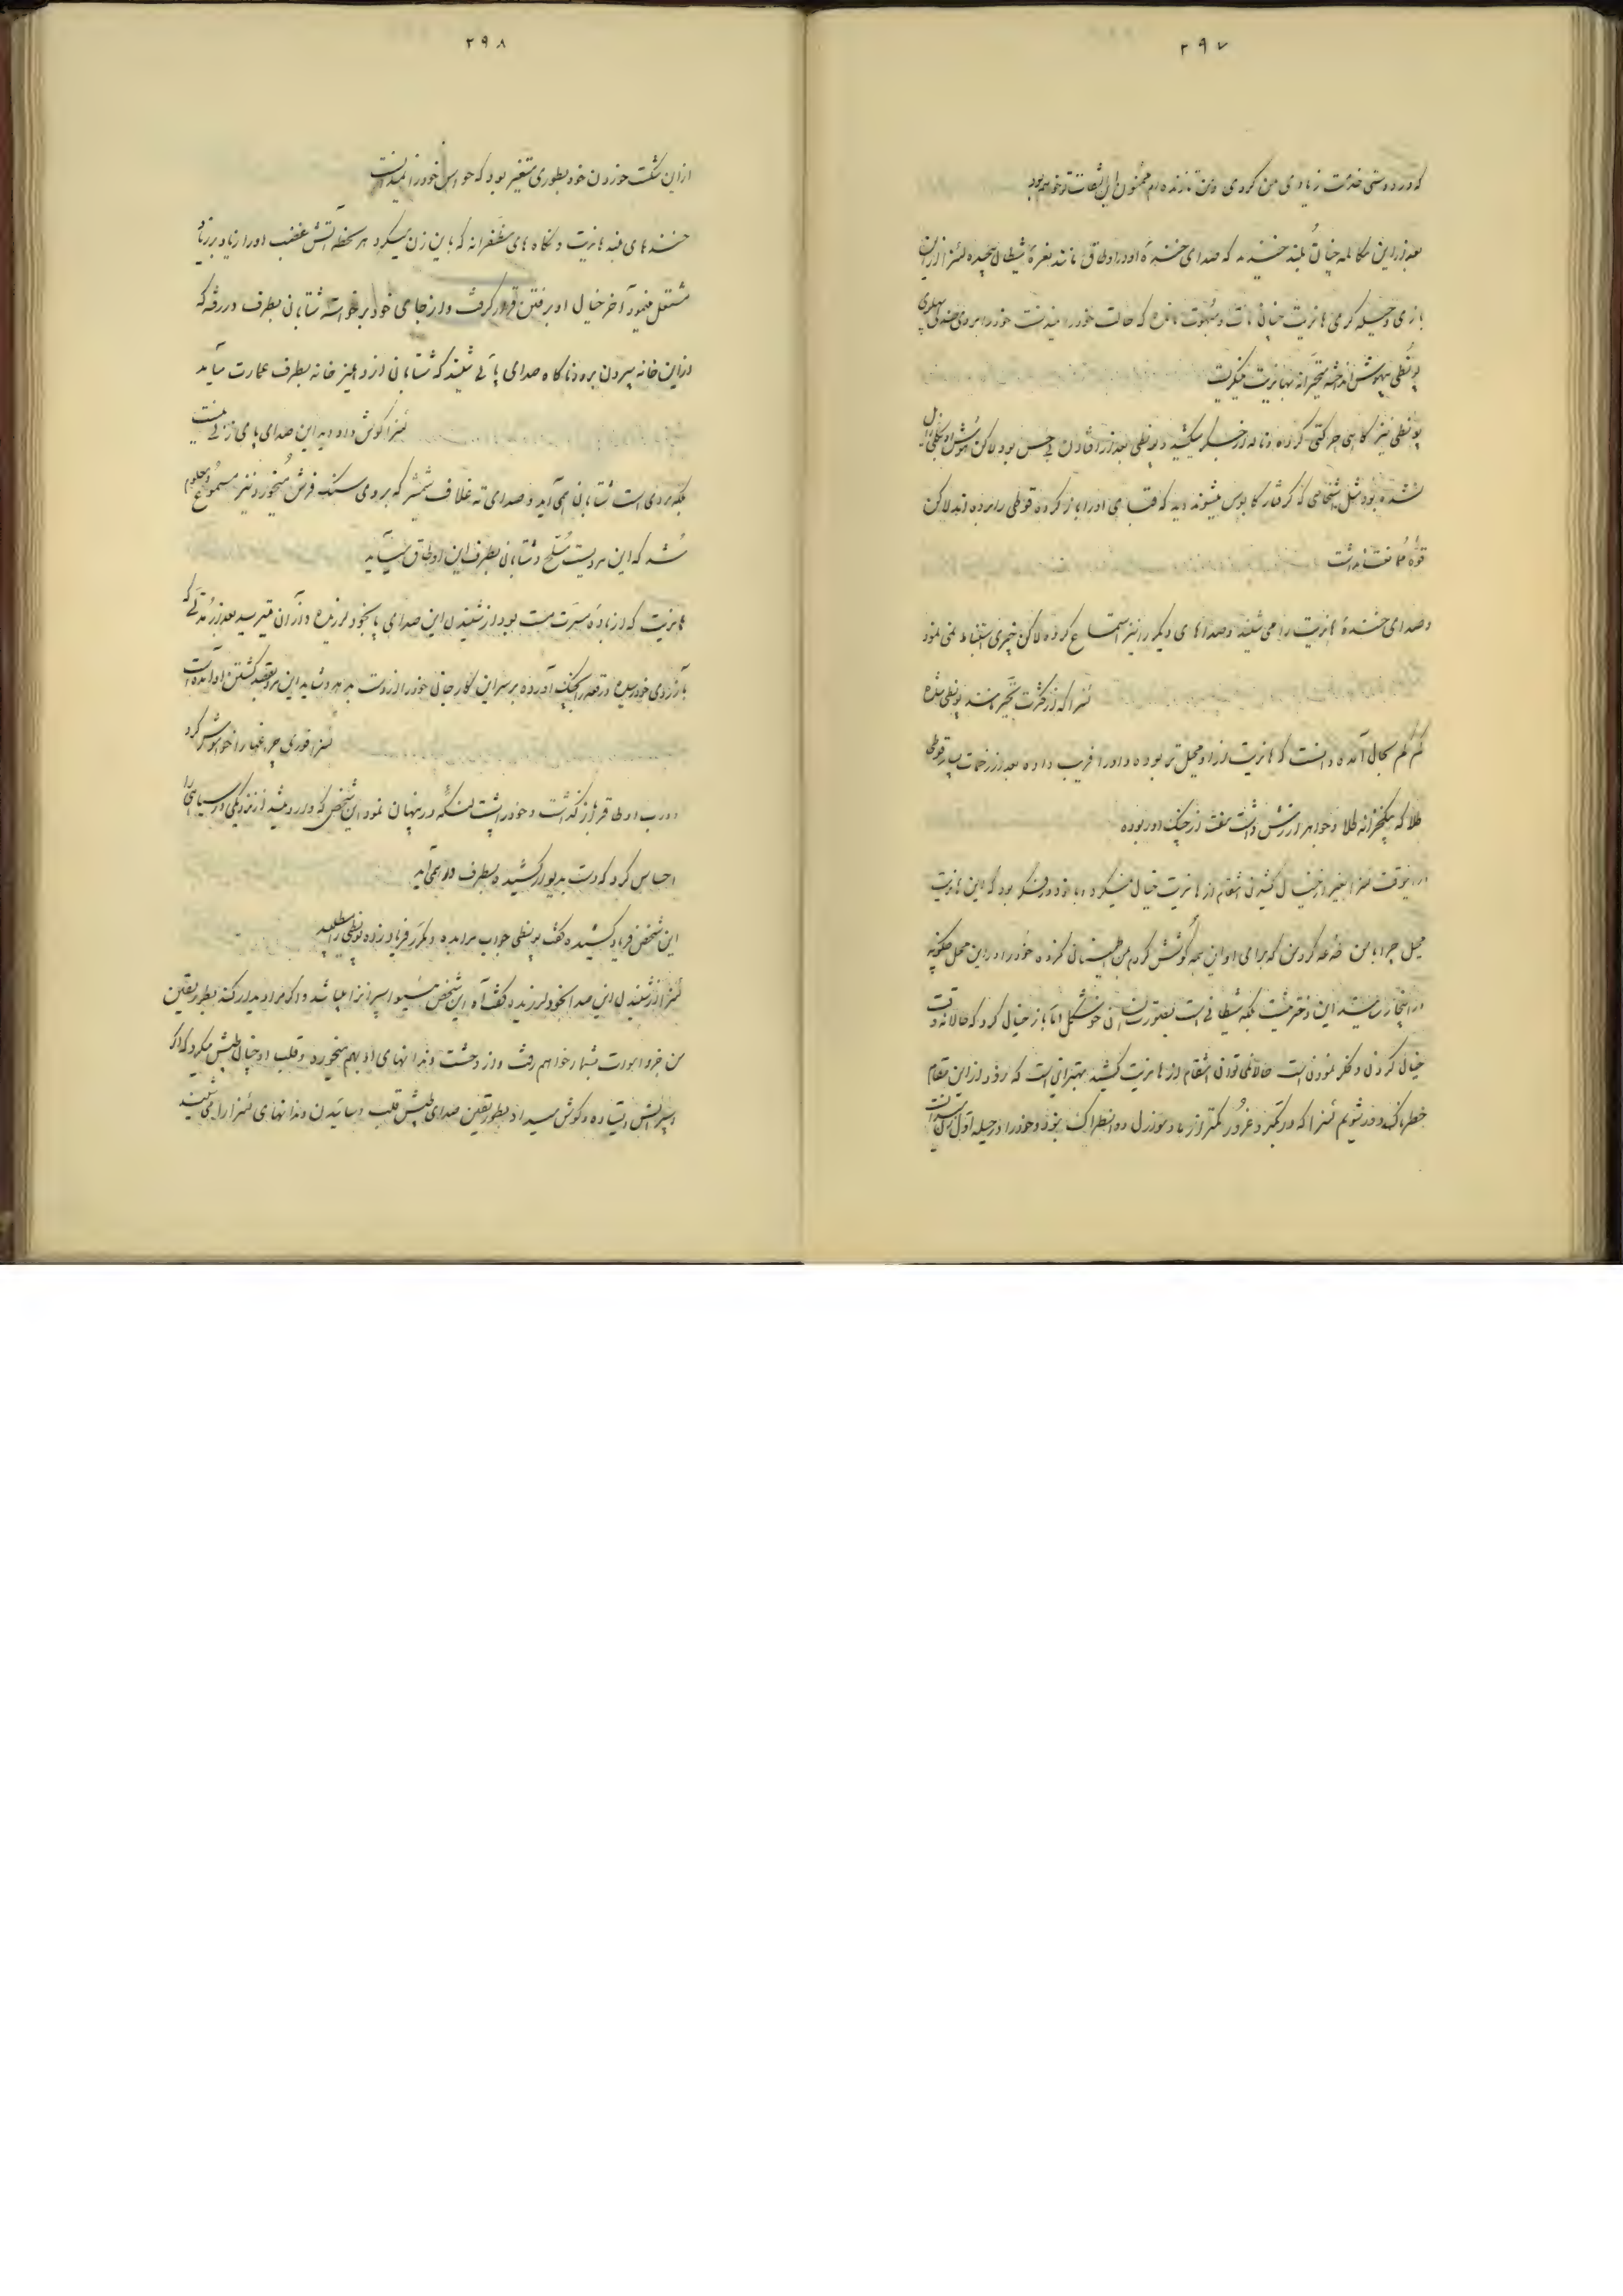 ۲۹۷
که در دوستی خدمت زیادی بمن کردی و من تا زنده ام ممنون این التفات تو خواهم بود
بعد از این مکالمه چنان بلند خندید که صدای خنده او در اوطاق مانند نعره شیطان پیچیده لئنرا از این
بازی و حیله گری هانریت چنان مات و مبهوت مانده که حالت خود را ندانست خود را بروی صندلی پهلوی
پونطی بیهوش انداخته متحیرانه بهانریت مینگریست
پونطی نیز گاهی حرکتی کرده و ناله از جگر میکشید و پونطی بعد از افتادن بی حس بود لاکن هوش او بکلی زایل
نشده بود مثل اشخاصی که گرفتار کابوس میشوند دید که قبای او را باز کرده قوطی را برده اند لاکن
قوه ممانعت نداشت
و صدای خنده هانریت را می شنید و صداهای دیگر را نیز استماع کرده لاکن چیزی استنباط نمی نمود
لئنرا که از کثرت تحیر مانند پونطی شده
کم کم بحال آمده دانست که هانریت از او محیل تر بوده و او را فریب داده بعد از زحمات بسیار قوطی
طلا که یکخزانه طلا و جواهر ارزش داشت مفت از چنگ او ربوده
در اینوقت لئنرا بغیر از خیال کشیدن انتقام از هانریت خیال نمیکرد و با خود در فکر بود که این هانریت
محیل چرا با من خدعه کرد من که برای او این همه کوشش کردم من اطمینانی نکرده خود را در این محل چگونه
در اینجا رسید این دختر نیست بلکه شیطانی است بصورت انسان خوشگل اما باز خیال کرد که حالا نه وقت
خیال کردن و فکر نمودن است حالا نمی توان انتقام از هانریت کشید بهتر آنست که زود از این مقام
خطرناک دور شویم لئنرا که در تکبر و غرور کمتر از مادموازل ده انطراک نبود و خود را در حیله اول زن میدانست
۲۹۸
از این شکست خوردن خود بطوری متغیر بود که حواس خود را نمیدانست
خنده های بلند هانریت و نگاه های مظفرانه که باین زن میکرد هر لحظه آتش غضب او را زیاده بر زیاد
مشتعل مینمود آخر خیال او بر رفتن قرار گرفت و از جای خود برخواسته شتابان بطرف در رفت که
از این خانه بیرون برود ناگاه صدای پائی شنید که شتابان از دهلیز خانه بطرف عمارت میآید
لئنرا گوش داد دید این صدای پای زنی نیست
بلکه مردی است شتابان می آید و صدای ته غلاف شمشیر که بروی سنگ فرش میخورد نیز مسموع و معلوم
شد که این مردیست مسلح و شتابان بطرف این اوطاق میآید
هانریت که از باده مسرت مست بود از شنیدن این صدای پا بخود لرزیده و از آن میترسید بعد از مدتی که
بآرزوی خود رسیده و قصد را بچنگ آورده بر سر این کار جان خود را از دست بدهد و شاید این مرد بقصد کشتن او آمده است
لئنرا فوری چراغها را خاموش کرد
درب اوطاق را باز گذاشت و خود را پشت لنگه در پنهان نمود این شخص که وارد میشد از نزدیکی در سیاهی را
احساس کرد که دست بدیوار کشیده بطرف در می آید
این شخص فریاد کشیده گفت پونطی جواب مرا بده و مکرر فریاد زده پونطی را طلبید
لئنرا از شنیدن این صدا بخود لرزیده گفت آه این شخص مسیو اسپرانزا میباشد و اگر مرا دیدار کند بطور یقین
من خود بصورت بشمار خواهم رفت و از وحشت دندانهای او بهم میخورد و قلب او چنان طپش میکرد که اگر
اسپرانس ایستاده و گوش میداد بطور یقین صدای طپش قلب و سائیدن دندانهای لئنرا را می شنید